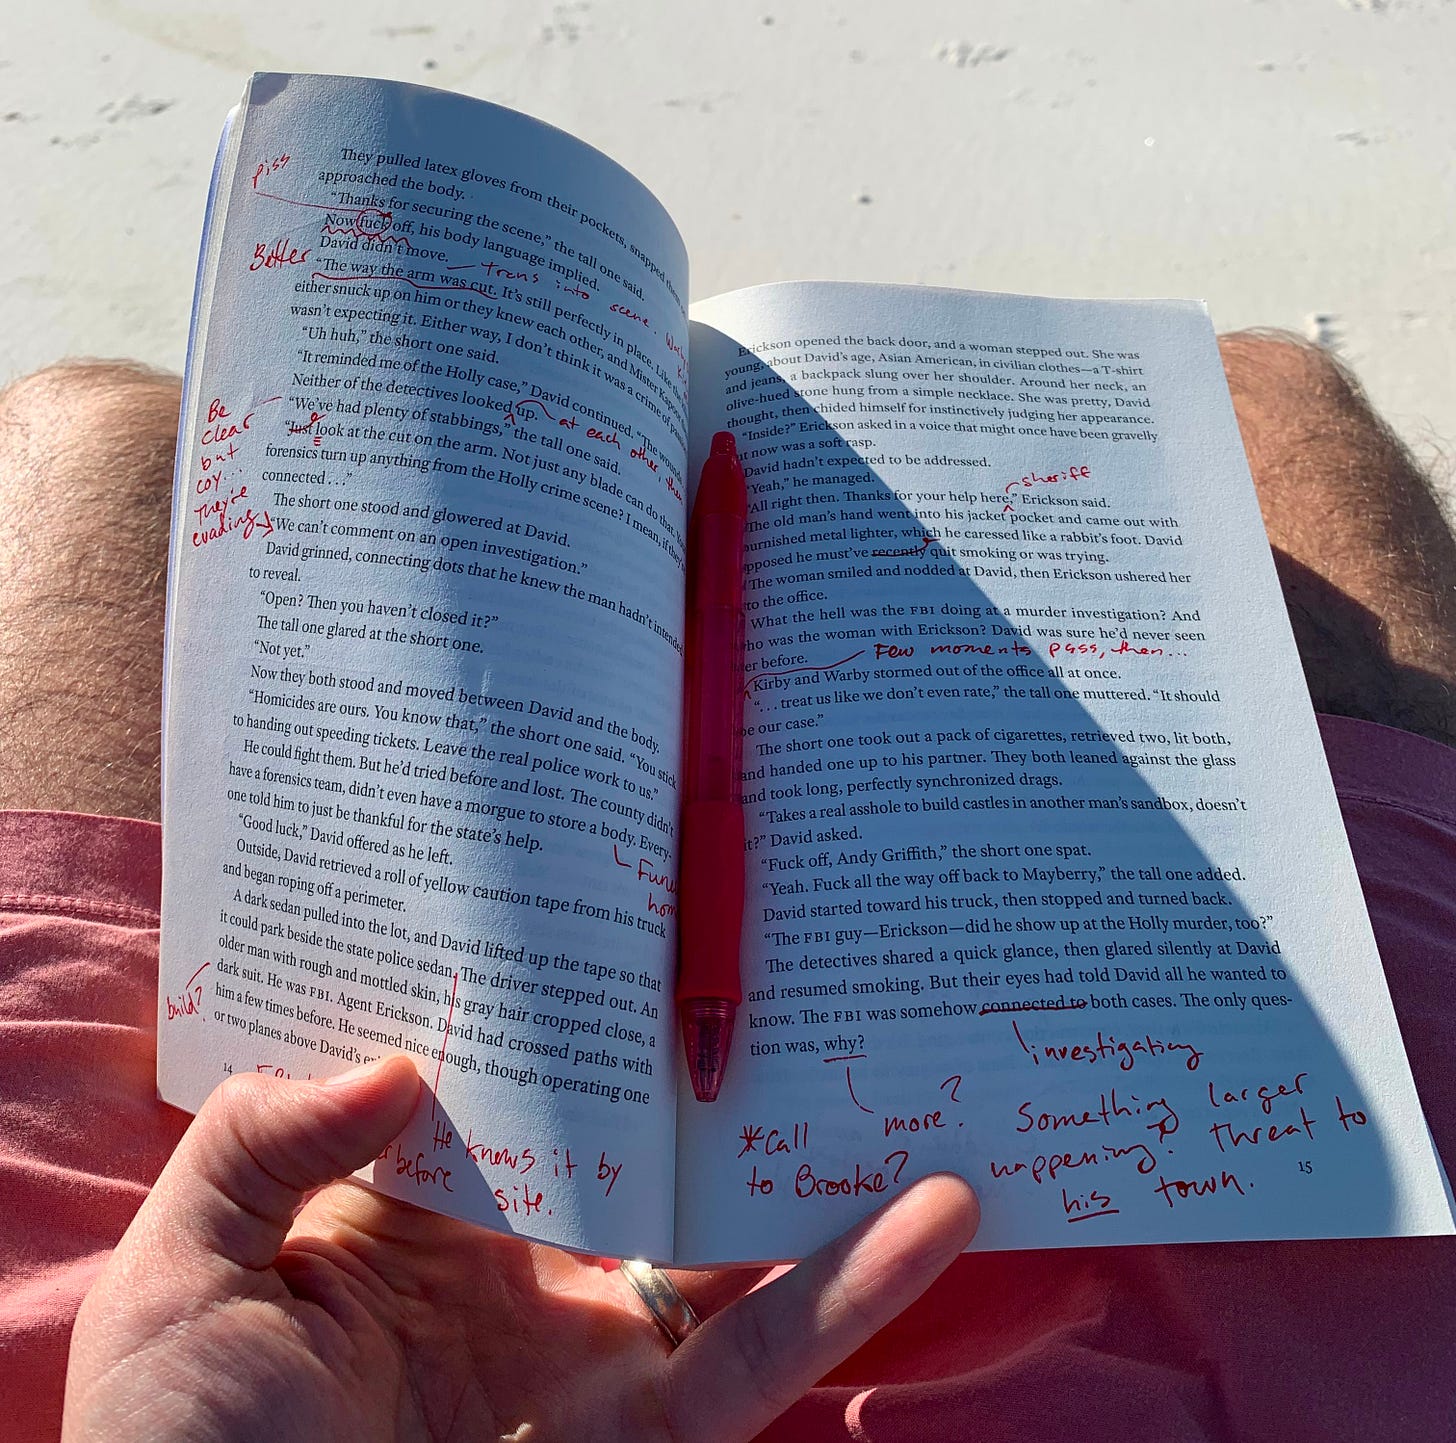 They pulled latex gloves from their pockets, snapped them
approached the body.
piss
"Thanks for securing the scene," the tall one said.
Now fuck off, his body language implied.
David didn't move. — trans into scene.
Better
"The way the arm was cut. It's still perfectly in place. Like the
either snuck up on him or they knew each other, and Mister Kapoor
wasn't expecting it. Either way, I don't think it was a crime of
"Uh huh," the short one said.
"It reminded me of the Holly case," David continued. "The wounds
Neither of the detectives looked up. at each other, then
"We've had plenty of stabbings," the tall one said.
Be
clear
but
coy...
They're
evading
"Just look at the cut on the arm. Not just any blade can do that. You
forensics turn up anything from the Holly crime scene? I mean, if they
connected . . ."
The short one stood and glowered at David.
"We can't comment on an open investigation."
David grinned, connecting dots that he knew the man hadn't intended
to reveal.
"Open? Then you haven't closed it?"
The tall one glared at the short one.
"Not yet."
Now they both stood and moved between David and the body.
"Homicides are ours. You know that," the short one said. "You stick
to handing out speeding tickets. Leave the real police work to us."
He could fight them. But he'd tried before and lost. The county didn't
have a forensics team, didn't even have a morgue to store a body. Every-
one told him to just be thankful for the state's help.
"Good luck," David offered as he left.
Outside, David retrieved a roll of yellow caution tape from his truck
and began roping off a perimeter.
A dark sedan pulled into the lot, and David lifted up the tape so that
it could park beside the state police sedan. The driver stepped out. An
older man with rough and mottled skin, his gray hair cropped close, a
dark suit. He was FBI. Agent Erickson. David had crossed paths with
build?
him a few times before. He seemed nice enough, though operating one
or two planes above David's
14
He knows it by
before site.
Erickson opened the back door, and a woman stepped out. She was
young, about David's age, Asian American, in civilian clothes—a T-shirt
and jeans, a backpack slung over her shoulder. Around her neck, an
olive-hued stone hung from a simple necklace. She was pretty, David
thought, then chided himself for instinctively judging her appearance.
"Inside?" Erickson asked in a voice that might once have been gravelly
but now was a soft rasp.
David hadn't expected to be addressed.
"Yeah," he managed.
sheriff
"All right then. Thanks for your help here," Erickson said.
The old man's hand went into his jacket pocket and came out with
burnished metal lighter, which he caressed like a rabbit's foot. David
supposed he must've recently quit smoking or was trying.
The woman smiled and nodded at David, then Erickson ushered her
to the office.
What the hell was the FBI doing at a murder investigation? And
who was the woman with Erickson? David was sure he'd never seen
her before.
Few moments pass, then...
Kirby and Warby stormed out of the office all at once.
". . . treat us like we don't even rate," the tall one muttered. "It should
be our case."
The short one took out a pack of cigarettes, retrieved two, lit both,
and handed one up to his partner. They both leaned against the glass
and took long, perfectly synchronized drags.
"Takes a real asshole to build castles in another man's sandbox, doesn't
it?" David asked.
"Fuck off, Andy Griffith," the short one spat.
"Yeah. Fuck all the way off back to Mayberry," the tall one added.
David started toward his truck, then stopped and turned back.
"The FBI guy—Erickson—did he show up at the Holly murder, too?"
The detectives shared a quick glance, then glared silently at David
and resumed smoking. But their eyes had told David all he wanted to
know. The FBI was somehow connected to both cases. The only ques-
tion was, why?
investigating
more?
*Call
to Brooke?
Something larger
happening? Threat to
his town.
15